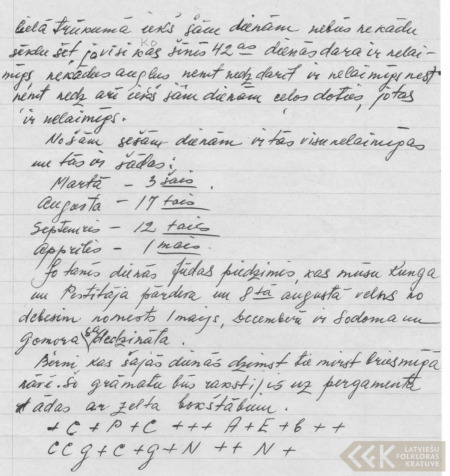 lielā trūkumā iekš šām dienām nebūs nekādu
sēklu sēt, jo visi kas šinīs 42as dienās dara ir nelai-
mīgs, nekādus augļus nemt nedz darīt ir nelaimīgs nest
nemt nedz arī iekš šām dienām ceļos doties, jo tas
ir nelaimīgs.
No šām sešām dienām ir tās visu nelaimīgas
un tās ir šādas:
Martā - 3 šais.
Augustā - 17 tais
Septemris - 12 tais
Apprīlis - 1 mais.
Jo tanīs dienās Jūdas piedzimis, kas mūsu Kunga
un Pestītāja pārdeva un 8tā augustā velns no
debesīm nomests 1 maijs, Decemberī ir Sodoma un
Gomora sadedzināta.
Bērni kas šajās dienās dzimst tie mirst briesmīgā
nāvē. Šo grāmatu būs rakstīt uz pergamenta
ādas ar zelta bokštābum.
+ C + P + C +++ A + E + b ++
C C g + C + g + N ++ N +
LATVIEŠU
FOLKLORAS
KRĀTUVE